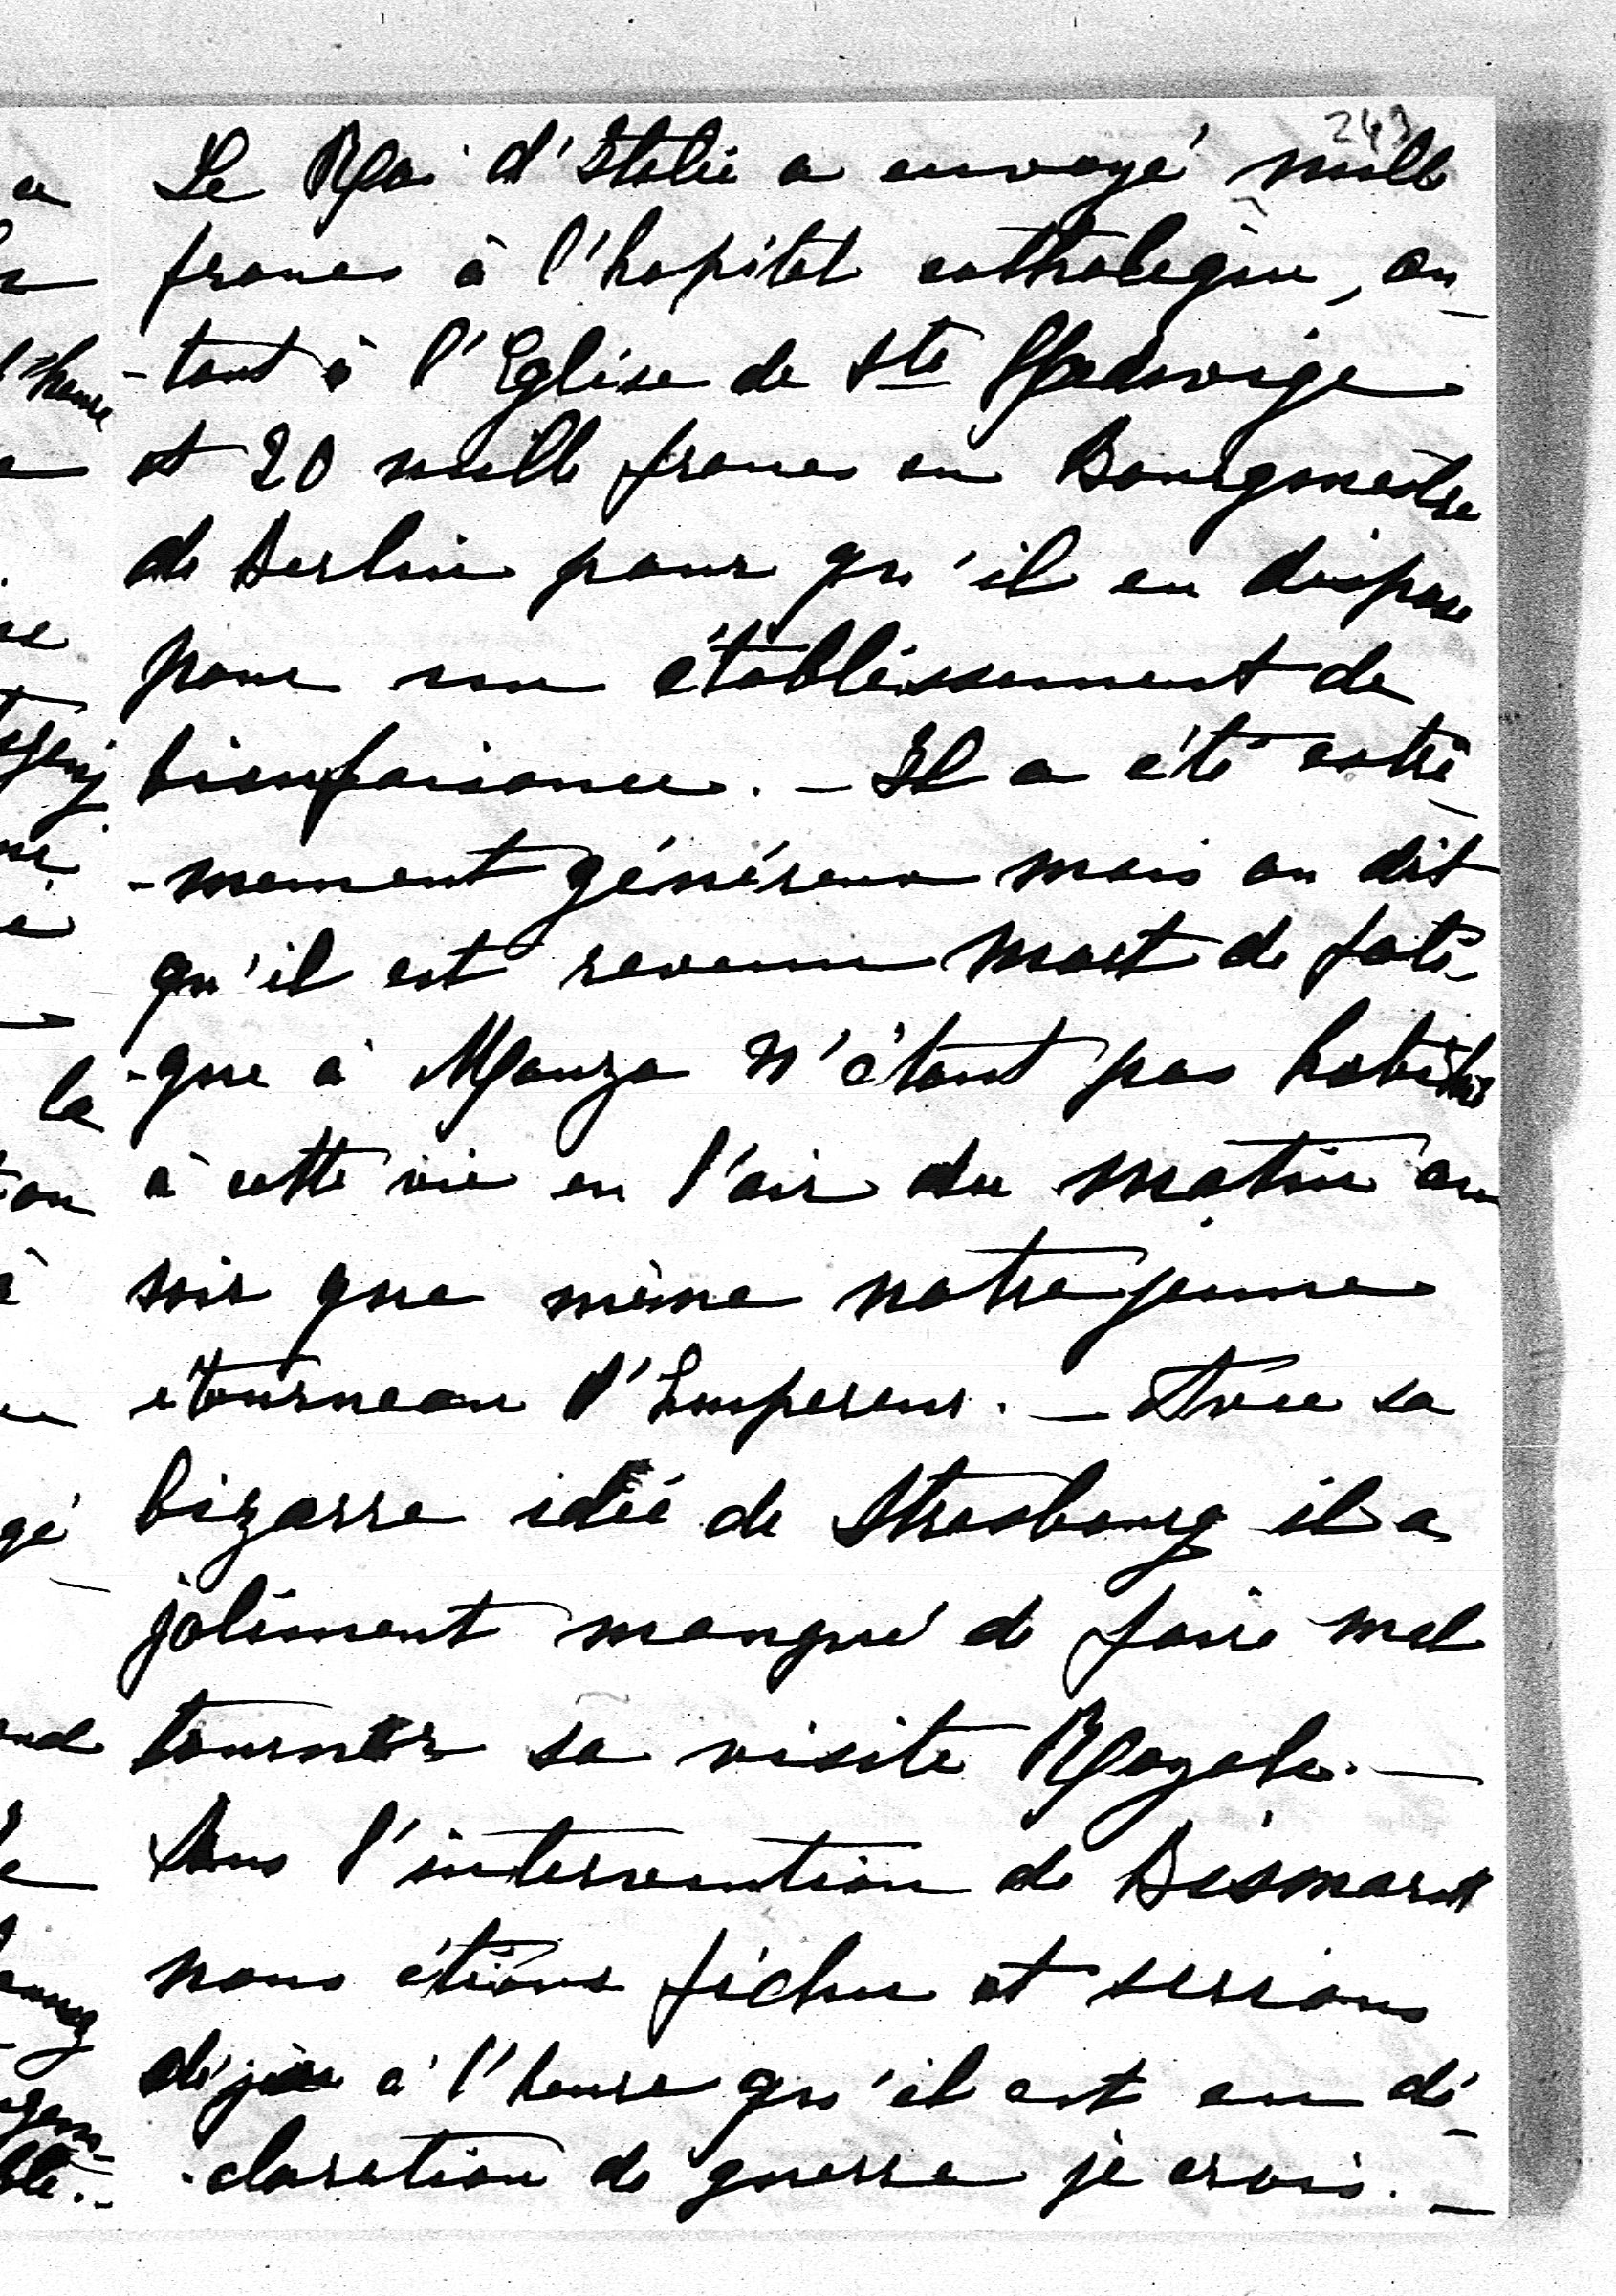 243
Le Roi d'Italie a envoyé mille
francs à l'hopital catholique, au-
-tant à l'Eglise de Ste Hedwige
et 20 mille francs au Bourgmestre
de Berlin pour qu'il en dispose
pour un établissement de
bienfaisance. - Il a été extrê-
-mement généreux mais on dit
qu'il est revenu mort de fati-
-gue à Monza n'étant pas habitué
à cette vie en l'air du matin au
soir que mène notre jeune
étourneau l'Empereur. - Avec sa
bizarre idée de Strasbourg il a
joliment manqué de faire mal
tourner sa visite Royale. -
Sans l'intervention de Bismarck
nous étions fichu et serions
déjà à l'heure qu'il est en dé-
-claration de guerre je crois. -